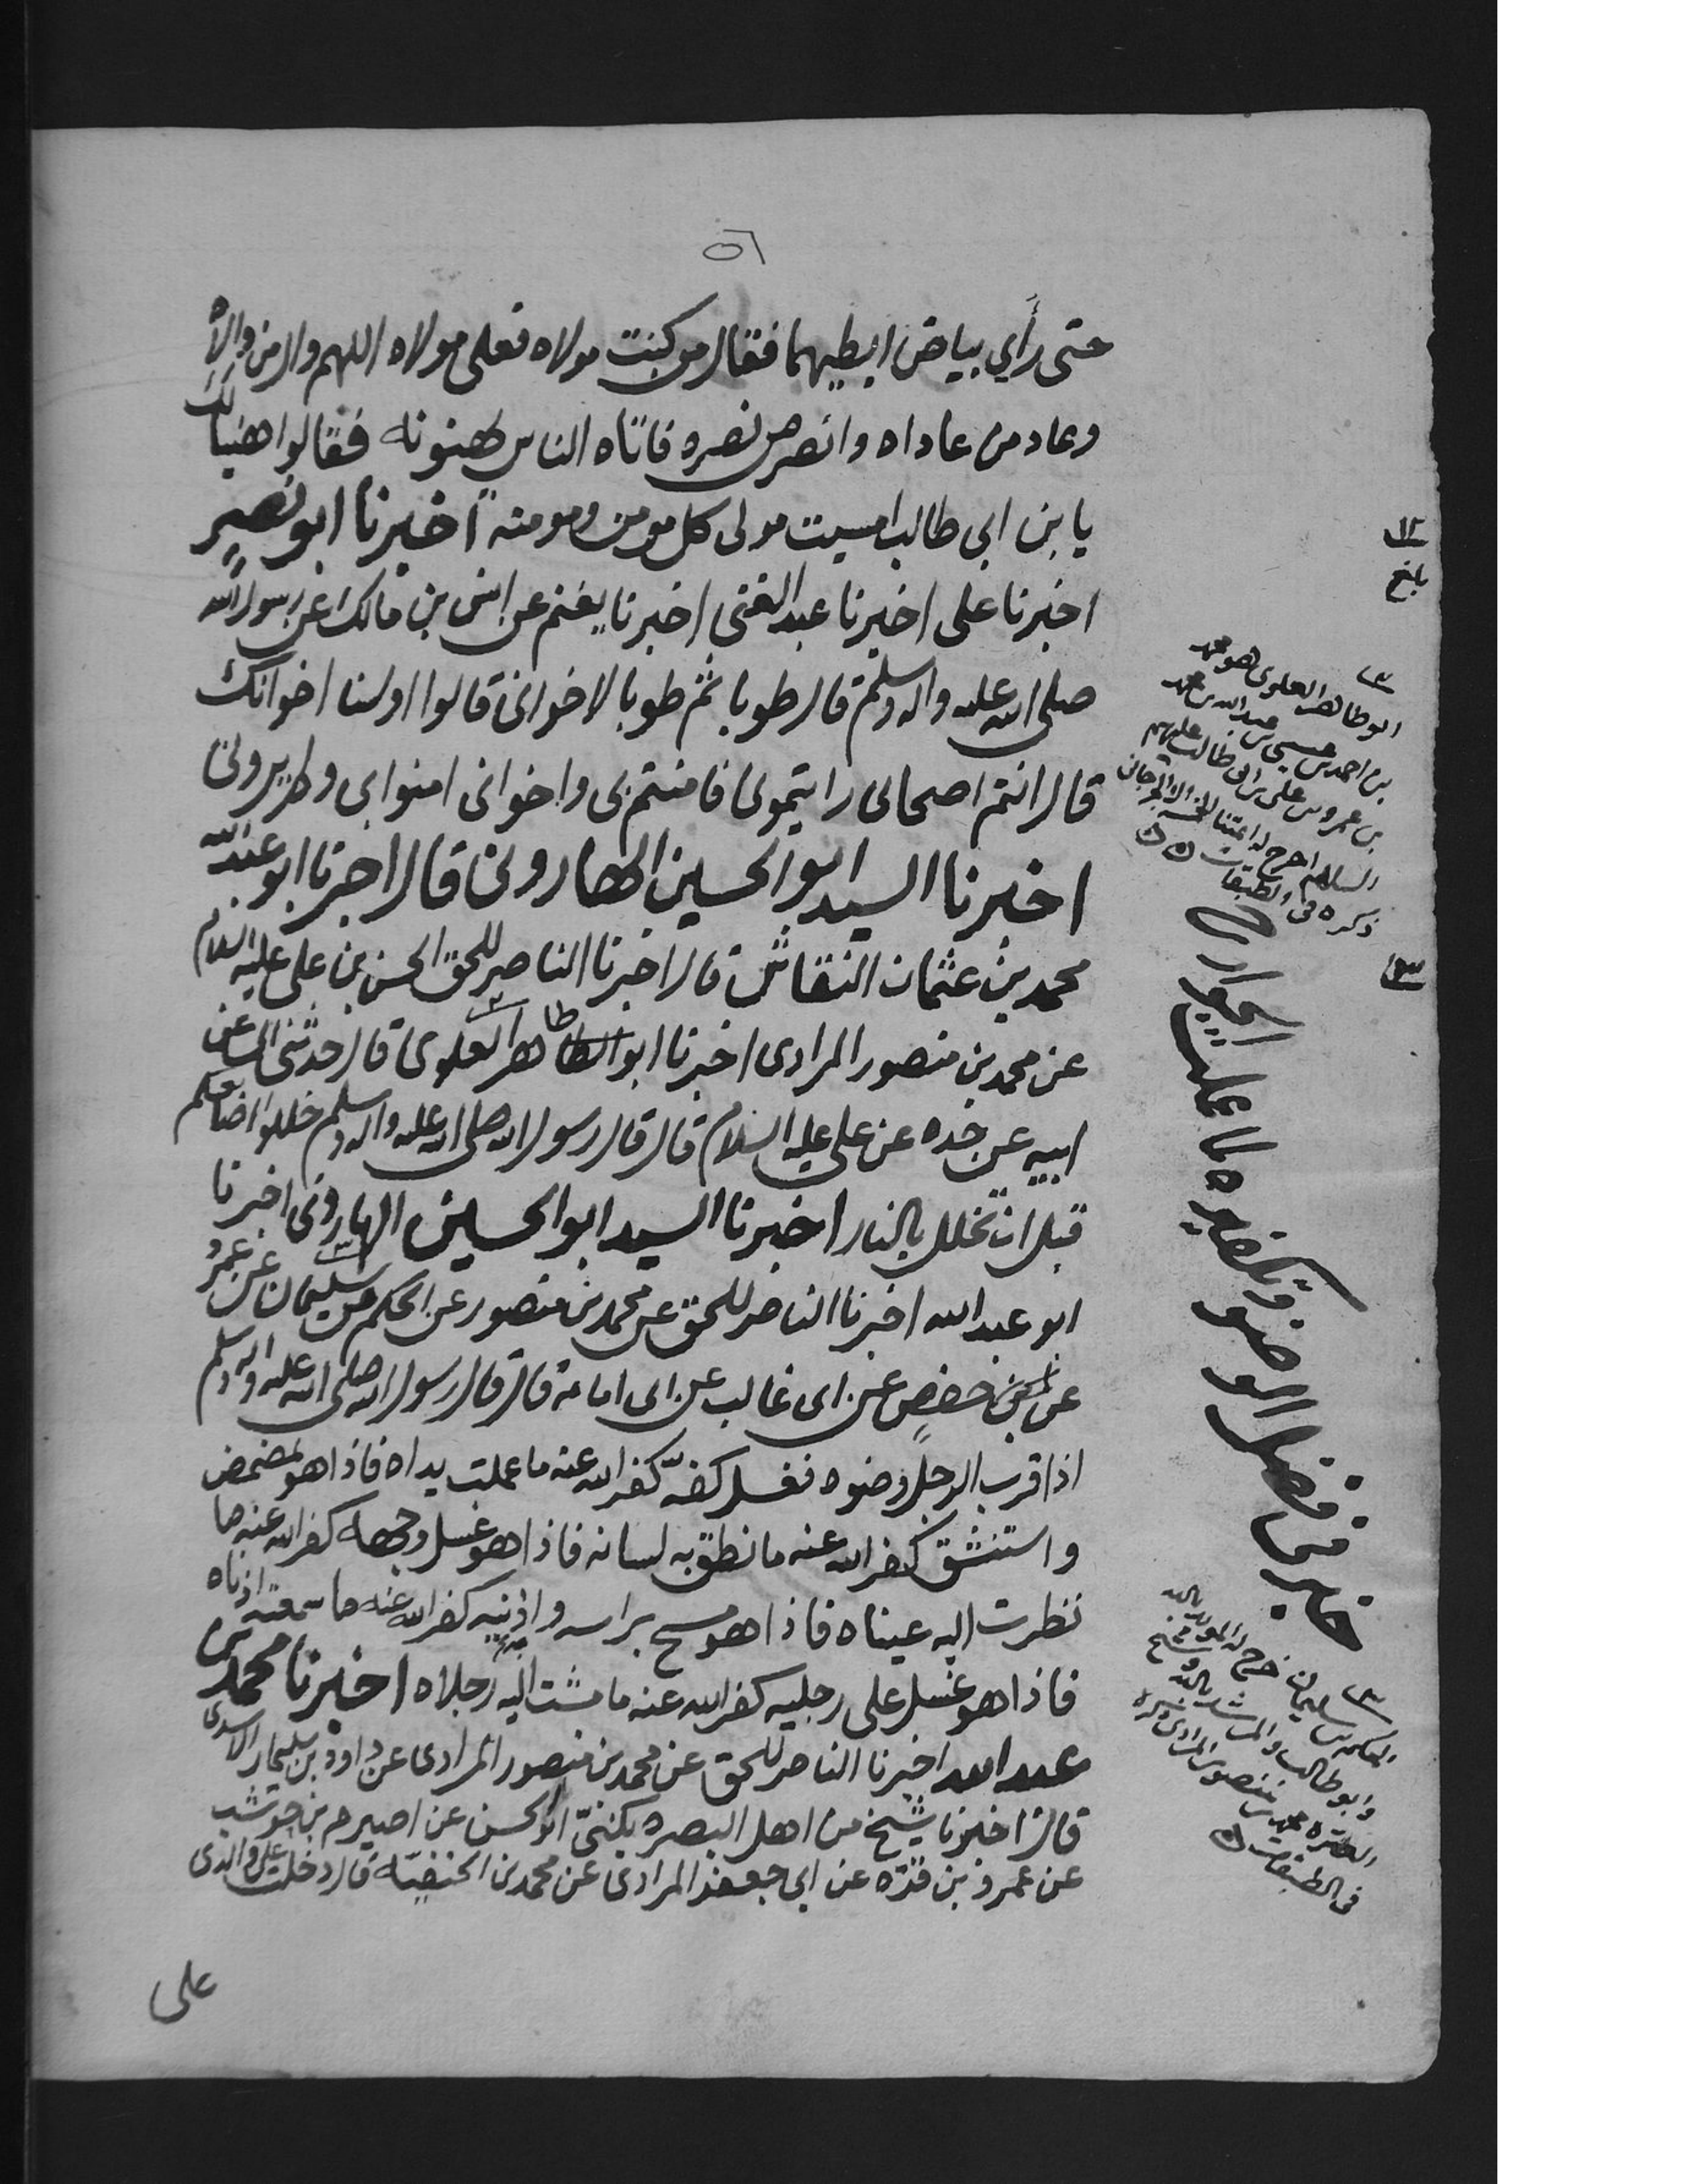 ٥٦
حتى رأي بياض ابطيهما فقال من كنت مولاه فعلي مولاه اللهم وال من والاه
وعاد من عاداه وانصر من نصره فاتاه الناس يهنونه فقالوا هنيا لك
يا بن ابي طالب امسيت مولى كل مومن ومومنه اخبرنا ابو نصير
اخبرنا علي اخبرنا عبد الغني اخبرنا يغنم عن انس بن مالك عن رسول الله
صلى الله عليه واله وسلم قال طوبا ثم طوبا لاخواني قالوا اولسنا اخوانك
قال انتم اصحابي رايتموني فامنتم بي واخواني امنوا بي ولم يروني
اخبرنا السيد ابو الحسين الهاروني قال اخبرنا ابو عبد الله
محمد بن عثمان النقاش قال اخبرنا الناصر للحق الحسن بن علي عليه السلام
عن محمد بن منصور المرادي اخبرنا ابو الطاهر العلوي قال حدثني ابي عن
ابيه عن جده عن علي عليه السلام قال قال رسول الله صلى الله عليه واله وسلم خللوا اصابعكم
قبل ان تخلل بالنار اخبرنا السيد ابو الحسين الهاروني اخبرنا
ابو عبد الله اخبرنا الناصر للحق عن محمد بن منصور عن الحكم بن سليمان عن عمرو
عن بن حفص عن ابي غالب عن ابي امامة قال قال رسول الله صلى الله عليه واله وسلم
اذا قرب الرجل وضوه فغسل كفيه كفر الله عنه ما عملت يداه فاذا هو تمضمض
واستنشق كفر الله عنه ما نطق به لسانه فاذا هو غسل وجهه كفر الله عنه ما
نظرت اليه عيناه فاذا هو مسح براسه واذنيه كفر الله عنه ما سمعته اذناه
فاذا هو غسل على رجليه كفر الله عنه ما مشت اليه رجلاه اخبرنا محمد بن
عبد الله اخبرنا الناصر للحق عن محمد بن منصور المرادي عن داود بن سليمان الاسدي
قال اخبرنا شيخ من اهل البصره يكنى ابو الحسن عن اصيرم بن حوشب
عن عمرو بن قره عن ابي جعفر المرادي عن محمد بن الحنفيه قال دخلت على والدي
علي
بلغ
ابو طاهر العلوي هو محمد
بن احمد بن عيسى بن عبد الله بن محمد
بن عمر بن علي بن ابي طالب عليهم
السلام اخرج له ائمتنا
ذكره في الطبقات
خبر في فضل الوضو وتكفيره لما عملت الجوارح
الحكم بن سليمان خرج له المويد بالله
وابو طالب والمرشد بالله
محمد بن منصور المرادي ذكره
في الطبقات